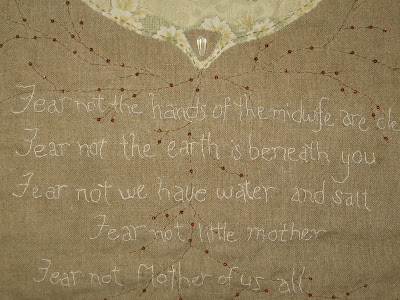 Fear not the hands of the midwife are cle
Fear not the earth is beneath you
Fear not we have water and salt
Fear not little mother
Fear not Mother of us all